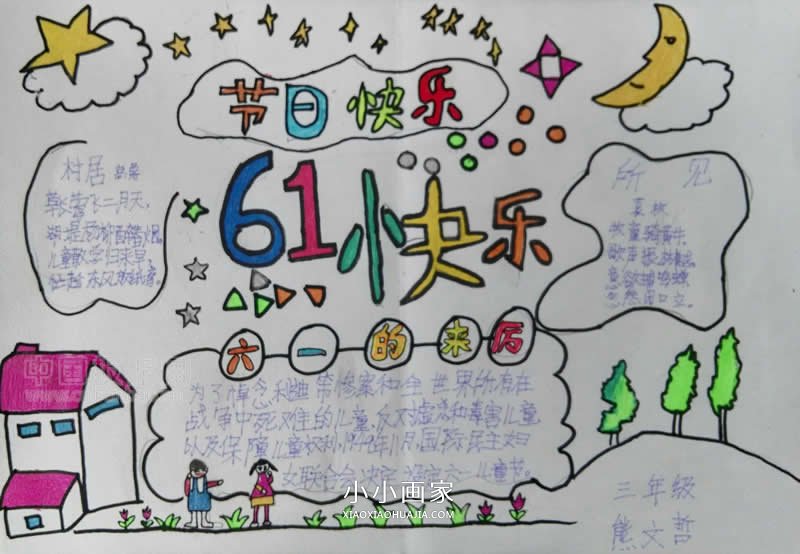 节日快乐
61快乐
村居
草长莺飞二月天,
儿童散学归来早,
所见
袁枚
牧童骑黄牛
意欲捕鸣蝉
忽然闭口立。
六一的来历
为了悼念利迪策惨案和全世界所有在
战争中死难的儿童,反对虐杀和毒害儿童
以及保障儿童权利,1949年11月,国际民主妇
女联合会决定
六一儿童节。
三年级
熊文哲
小小画家
XIAOXIAOHUAJIA.COM